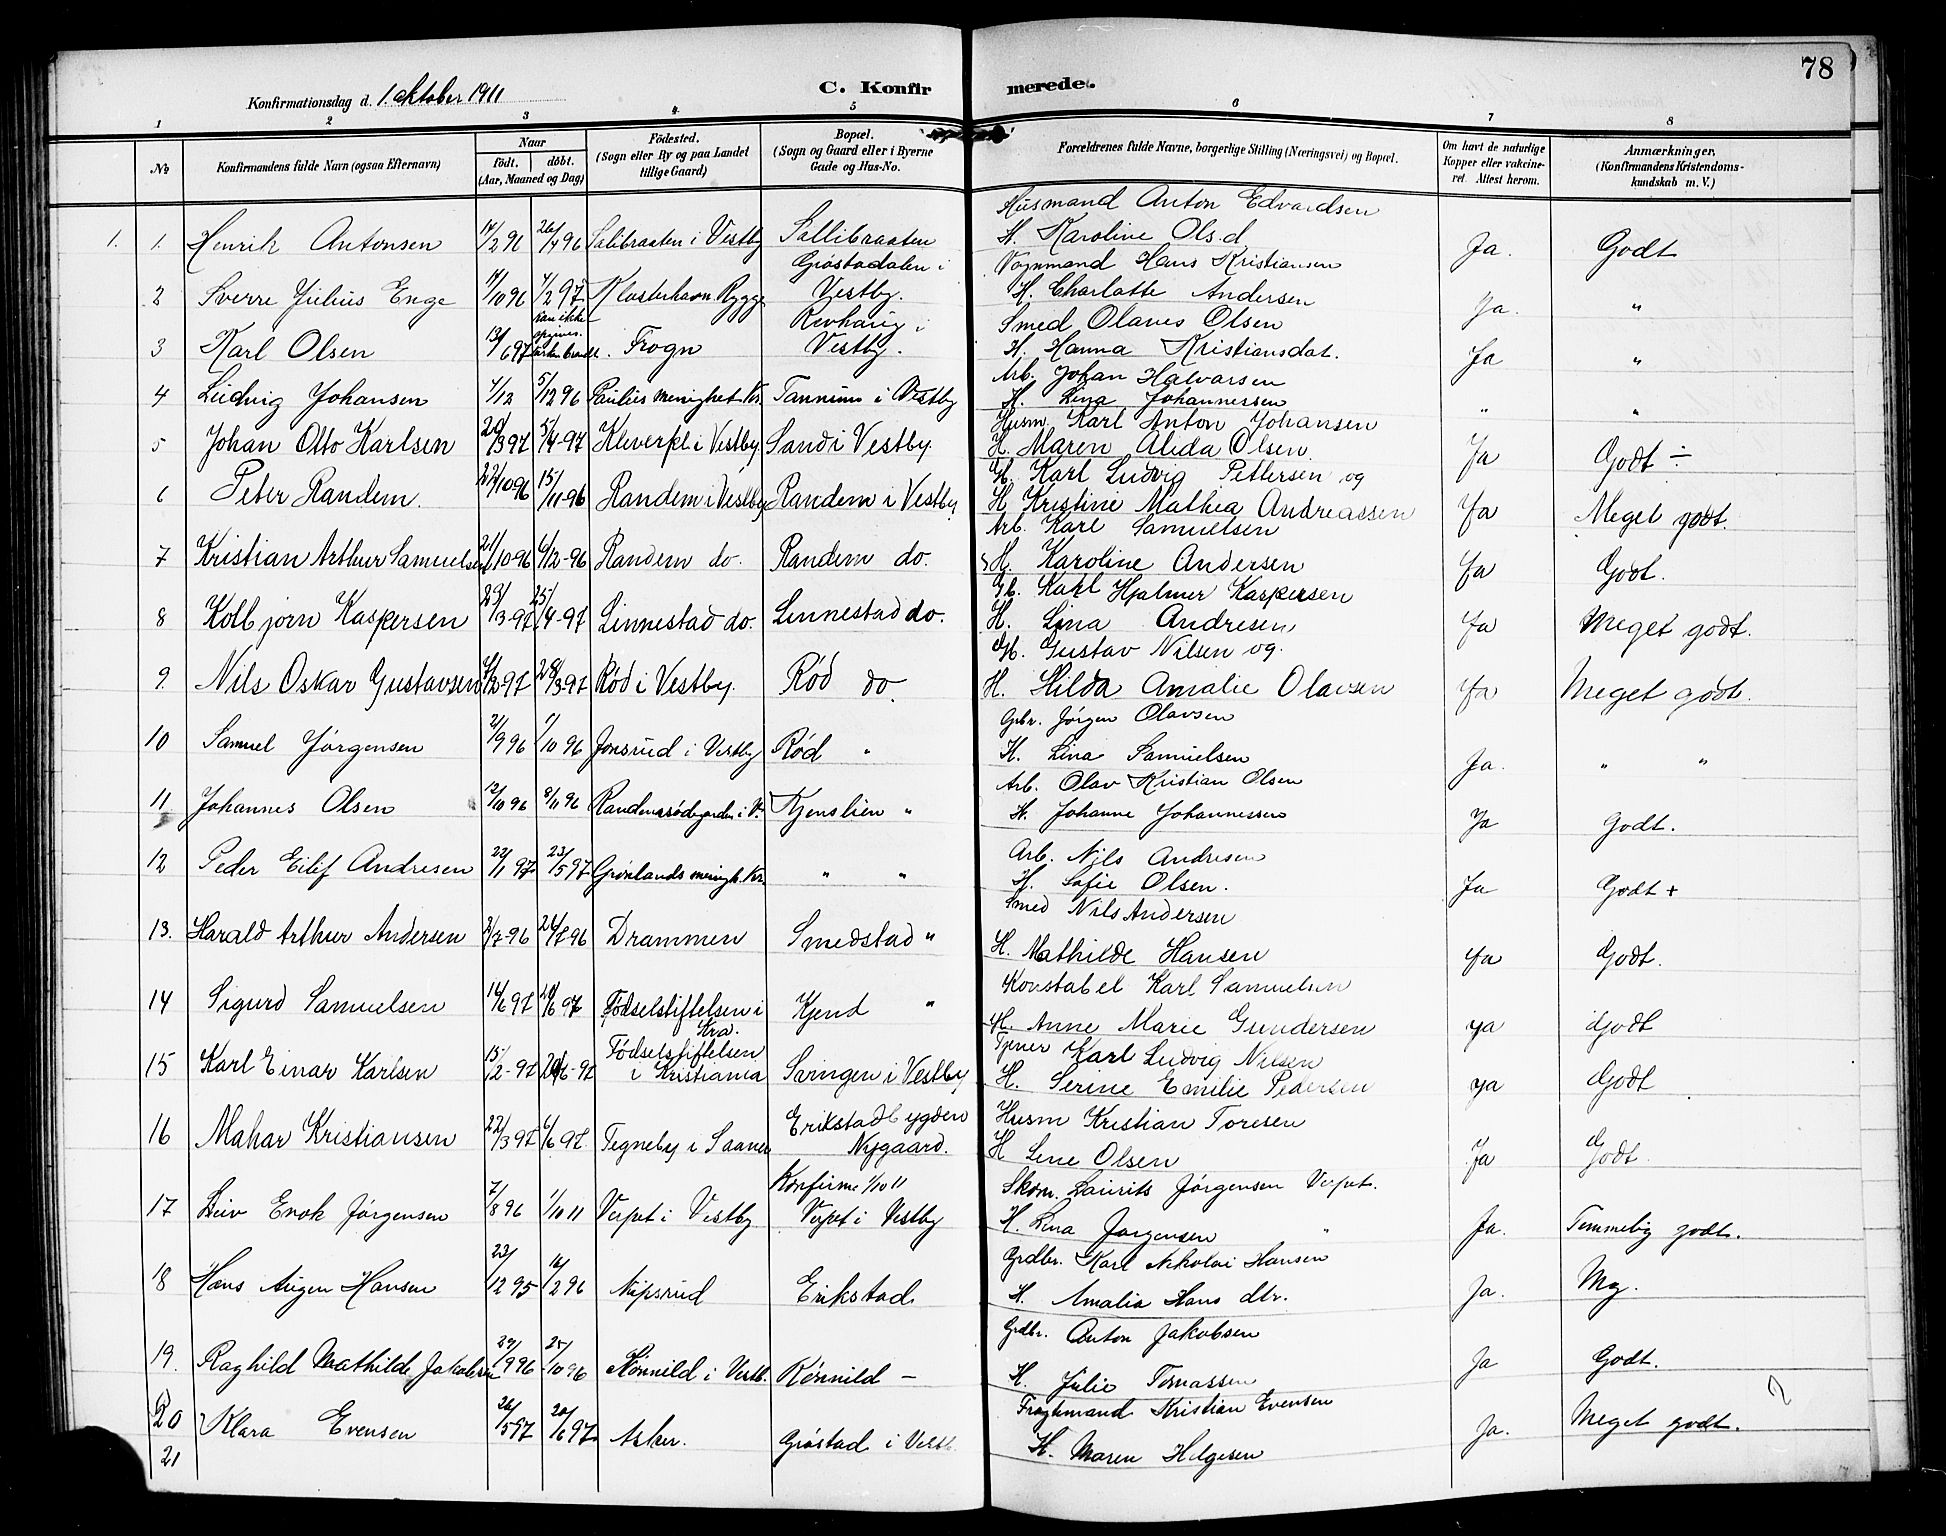 78
Konfirmationsdag d. 1. oktober 1911
C. Konfirmerede.
1 2 3 4 5 6 7 8
No
Konfirmandens fulde Navn (ogsaa Efternavn)
Naar
födt. döbt.
(Aar, Maaned og Dag)
Födested.
(Sogn eller By og paa Landet
tillige Gaard)
Bopæl.
(Sogn og Gaard eller i Byerne
Gade og Hus-No.
Forældrenes fulde Navne, borgerlige Stilling (Næringsvei) og Bopæl.
Om havt de naturlige
Kopper eller vakcine-
ret. Attest herom.
Anmærkninger,
(Konfirmandens Kristendoms-
kundskab m. V.)
Husmand Anton Edvardsen
1. 1. Henrik Antonsen 26/4 96 Salibraaten i Vestby Sallibraaten H. Karoline Ols.d Ja. Godt
Grøstadalen i Vognmand Hans Kristiansen
2 Sverre Julius Enge 1/2 97 Klosterhavn Rygge Vestby. H. Charlotte Andersen Ja. "
kan ikke Revhaug i Smed Olaves Olsen
3 Karl Olsen 13/6 97 Frogn Vestby. H. Hanna Kristiansdat. Ja "
Arb. Johan Halvarsen
4 Ludvig Johansen 1/12 5/12 96 Paulus menighet Kr. Tannum i Vestby H. Lina Johannessen " "
Husm. Karl Anton Johansen
5 Johan Otto Karlsen 20/3 97 5/4-97 Kleverpl i Vestby Sand i Vestby H. Maren Alida Olsen Ja Godt ÷
Karl Ludvig Pettersen og
6 Peter Randem. 22/10 96 15/11-96 Randem i Vestby Randem i Vestby H. Kristine Mathea Andreassen Ja Meget godt.
Arb. Karl Samuelsen
7 Kristian Arthur Samuelsen 21/10-96 6/12-96 Randem do. Randem do. H. Karoline Andersen Ja Godt.
Gb. Karl Hjalmer Kaspersen
8 Kolbjørn Kaspersen 23/3-97 25/4-97 Linnestad do. Linnestad do. H. Lina Andresen Ja Meget godt.
Gustav Nilsen og
9. Nils Oskar Gustavsen 28/3-97 Rød i Vestby. Rød do. H. Hilda Amalie Olavsen Ja Meget godt.
Gbr. Jørgen Olavsen
10 Samuel Jørgensen 2/9 96 1/10 96 Jonsrud i Vestby Rød " H. Lina Samuelsen Ja. " "
Arb. Olav Kristian Olsen
11 Johannes Olsen 12/10 96 8/11 96 Randemsrødegarden i V. Kjenslien " H. Johanne Johannessen Ja Godt.
Arb. Nils Andresen
12 Peder Eilif Andresen 22/1 97 23/5 97 Grønlands menigh. Kr. " " H. Sofie Olsen. Ja Godt +
Smed Nils Andersen
13. Harald Arthur Andersen 2/7-96 Drammen Smedstad " H. Mathilde Hansen Ja Godt.
Konstabel Karl Samuelsen
14 Sigurd Samuelsen 14/6 97 Fødselstiftelsen i Kra. Kjend " H. Anne Marie Gundersen Ja Godt
Fødselstiftelsen Tjener Karl Ludvig Nilsen
15 Karl Einar Karlsen 15/2-97 i Kristiania Saringen i Vestby H. Serine Emilie Pedersen Ja Godt
Erikstadbygden Husm Kristian Toresen
16 Mahar Kristiansen 22/3 97 6/6 97 Tegneby i Saaner Nygaard. H Lene Olsen Ja Godt
Konfirme 1/10 11 Skom. Laurits Jørgensen Verpet.
17 Leiv Enok Jørgensen 7/8 96 1/10 11 Verpet i Vestby Verpet i Vestby H. Lina Jørgensen " Ja. Temmelig godt.
Grdbr. Karl Nikolai Hansen
18 Hans Augen Hansen 23/12 95 16/2 96 Nipsrud Erikstad H. Amalia Hans dtr. Ja. Mg.
Grdbr. Anton Jakobsen
19. Raghild Mathilde Jakobsen 29/9 96 25/10 96 Kønnild i Vestb. Kønnild — H. Julie Tomassen Ja Godt.
Fragtmand Kristian Evensen
20 Klara Evensen 26/5 97 20/6 97 Asker. Grøstad i Vestb. H. Maren Helgesen Ja. Meget godt.
21